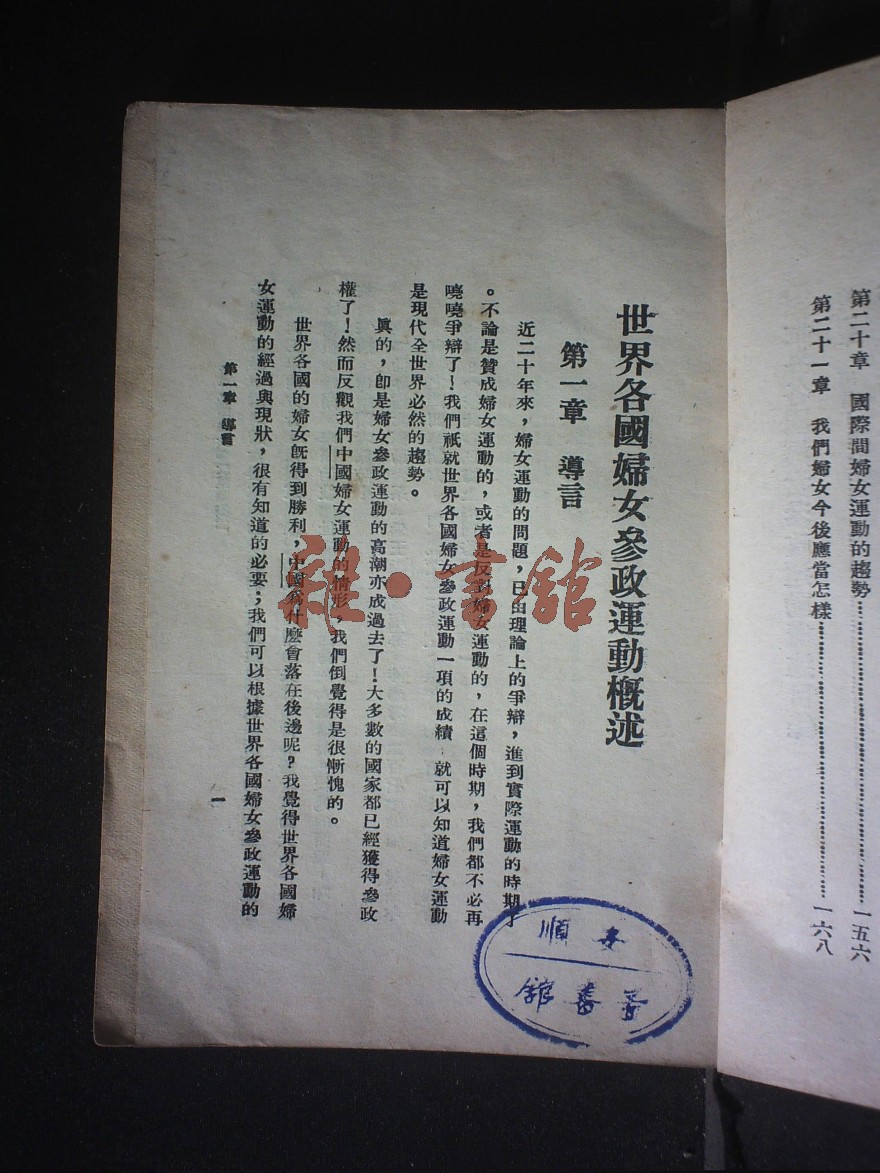 第二十章　國際間婦女運動的趨勢……一五六
第二十一章　我們婦女今後應當怎樣……一六八
世界各國婦女參政運動概述
第一章　導言
近二十年來，婦女運動的問題，已由理論上的爭辯，進到實際運動的時期了
。不論是贊成婦女運動的，或者是反對婦女運動的，在這個時期，我們都不必再
嘵嘵爭辯了！我們祇就世界各國婦女參政運動一項的成績　就可以知道婦女運動
是現代全世界必然的趨勢。
眞的，卽是婦女參政運動的高潮亦成過去了！大多數的國家都已經獲得參政
權了！然而反觀我們中國婦女運動的情形，我們倒覺得是很慚愧的。
世界各國的婦女旣得到勝利，中國爲什麽會落在後邊呢？我覺得世界各國婦
女運動的經過與現狀，很有知道的必要；我們可以根據世界各國婦女參政運動的
第一章　導言
一
雜·書舘
安順
書舘